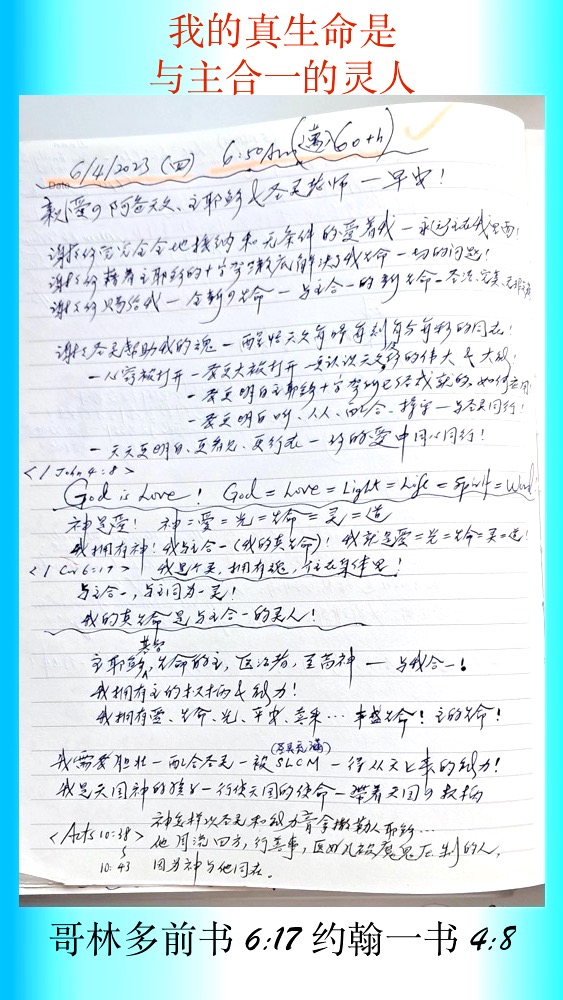 我的真生命是
与主合一的灵人
Date 6/4/2023 (四) 6:50 Am (遇入60th)
亲爱の阿爸天父、主耶稣&圣灵老师一早安!
谢谢你完完全全地接纳和无条件的爱着我一永远住在我里面!
谢谢你藉着主耶稣的十字架彻底解决了我生命一切的问题!
谢谢你赐给我一全新の生命一与主合一的新生命一圣洁、完美、
谢谢圣灵帮助我的魂一醒悟天父每时每刻每分每秒的同在!
一心窍被打开一要更大被打开一更认识天父的伟大&大能!
一要更明白主耶稣十字架所已经成就的,如何应用
一要更明白听、从、配合、持守一与圣灵同行!
一天天更明白、更看见、更行在一切的爱中同心同行!
<1 John 4:8>
God is Love! God = Love = Light = Life = Spirit = Word!
神是爱! 神=爱=光=生命=灵=道
我拥有神!我与主合一(我的真生命)!我就是爱=光=生命=灵=道!
<1 Cor 6:17> 我是个灵,拥有魂,住在身体里!
与主合一,与主同为一灵!
我的真生命是与主合一的灵人!
基督
主耶稣,生命的主,医治者,至高神一与我合一!
我拥有主的权柄&能力!
我拥有爱、生命、光、平安、喜乐…丰盛生命!主的生命!
(圣灵充满)
我需要胆壮一配合圣灵一被SLCM一得从天上来的能力!
我是天国神的孩子一行使天国的使命一带着天国の权柄
<Acts 10:38> 神怎样以圣灵和能力膏拿撒勒人耶稣…
他周流四方,行善事,医好凡被魔鬼压制的人,
10:43 因为神与他同在。
哥林多前书 6:17 约翰一书 4:8